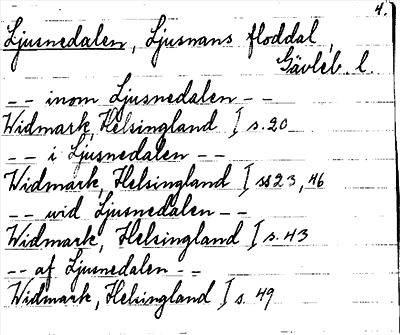 4.
Ljusnedalen, Ljusnans floddal,
Gävleb. l.
-- inom Ljusnedalen --
Widmark, Helsingland I s. 20
-- i Ljusnedalen --
Widmark, Helsingland I ss 23, 46
-- wid Ljusnedalen --
Widmark, Helsingland I s. 43
-- af Ljusnedalen --
Widmark, Helsingland I s. 49